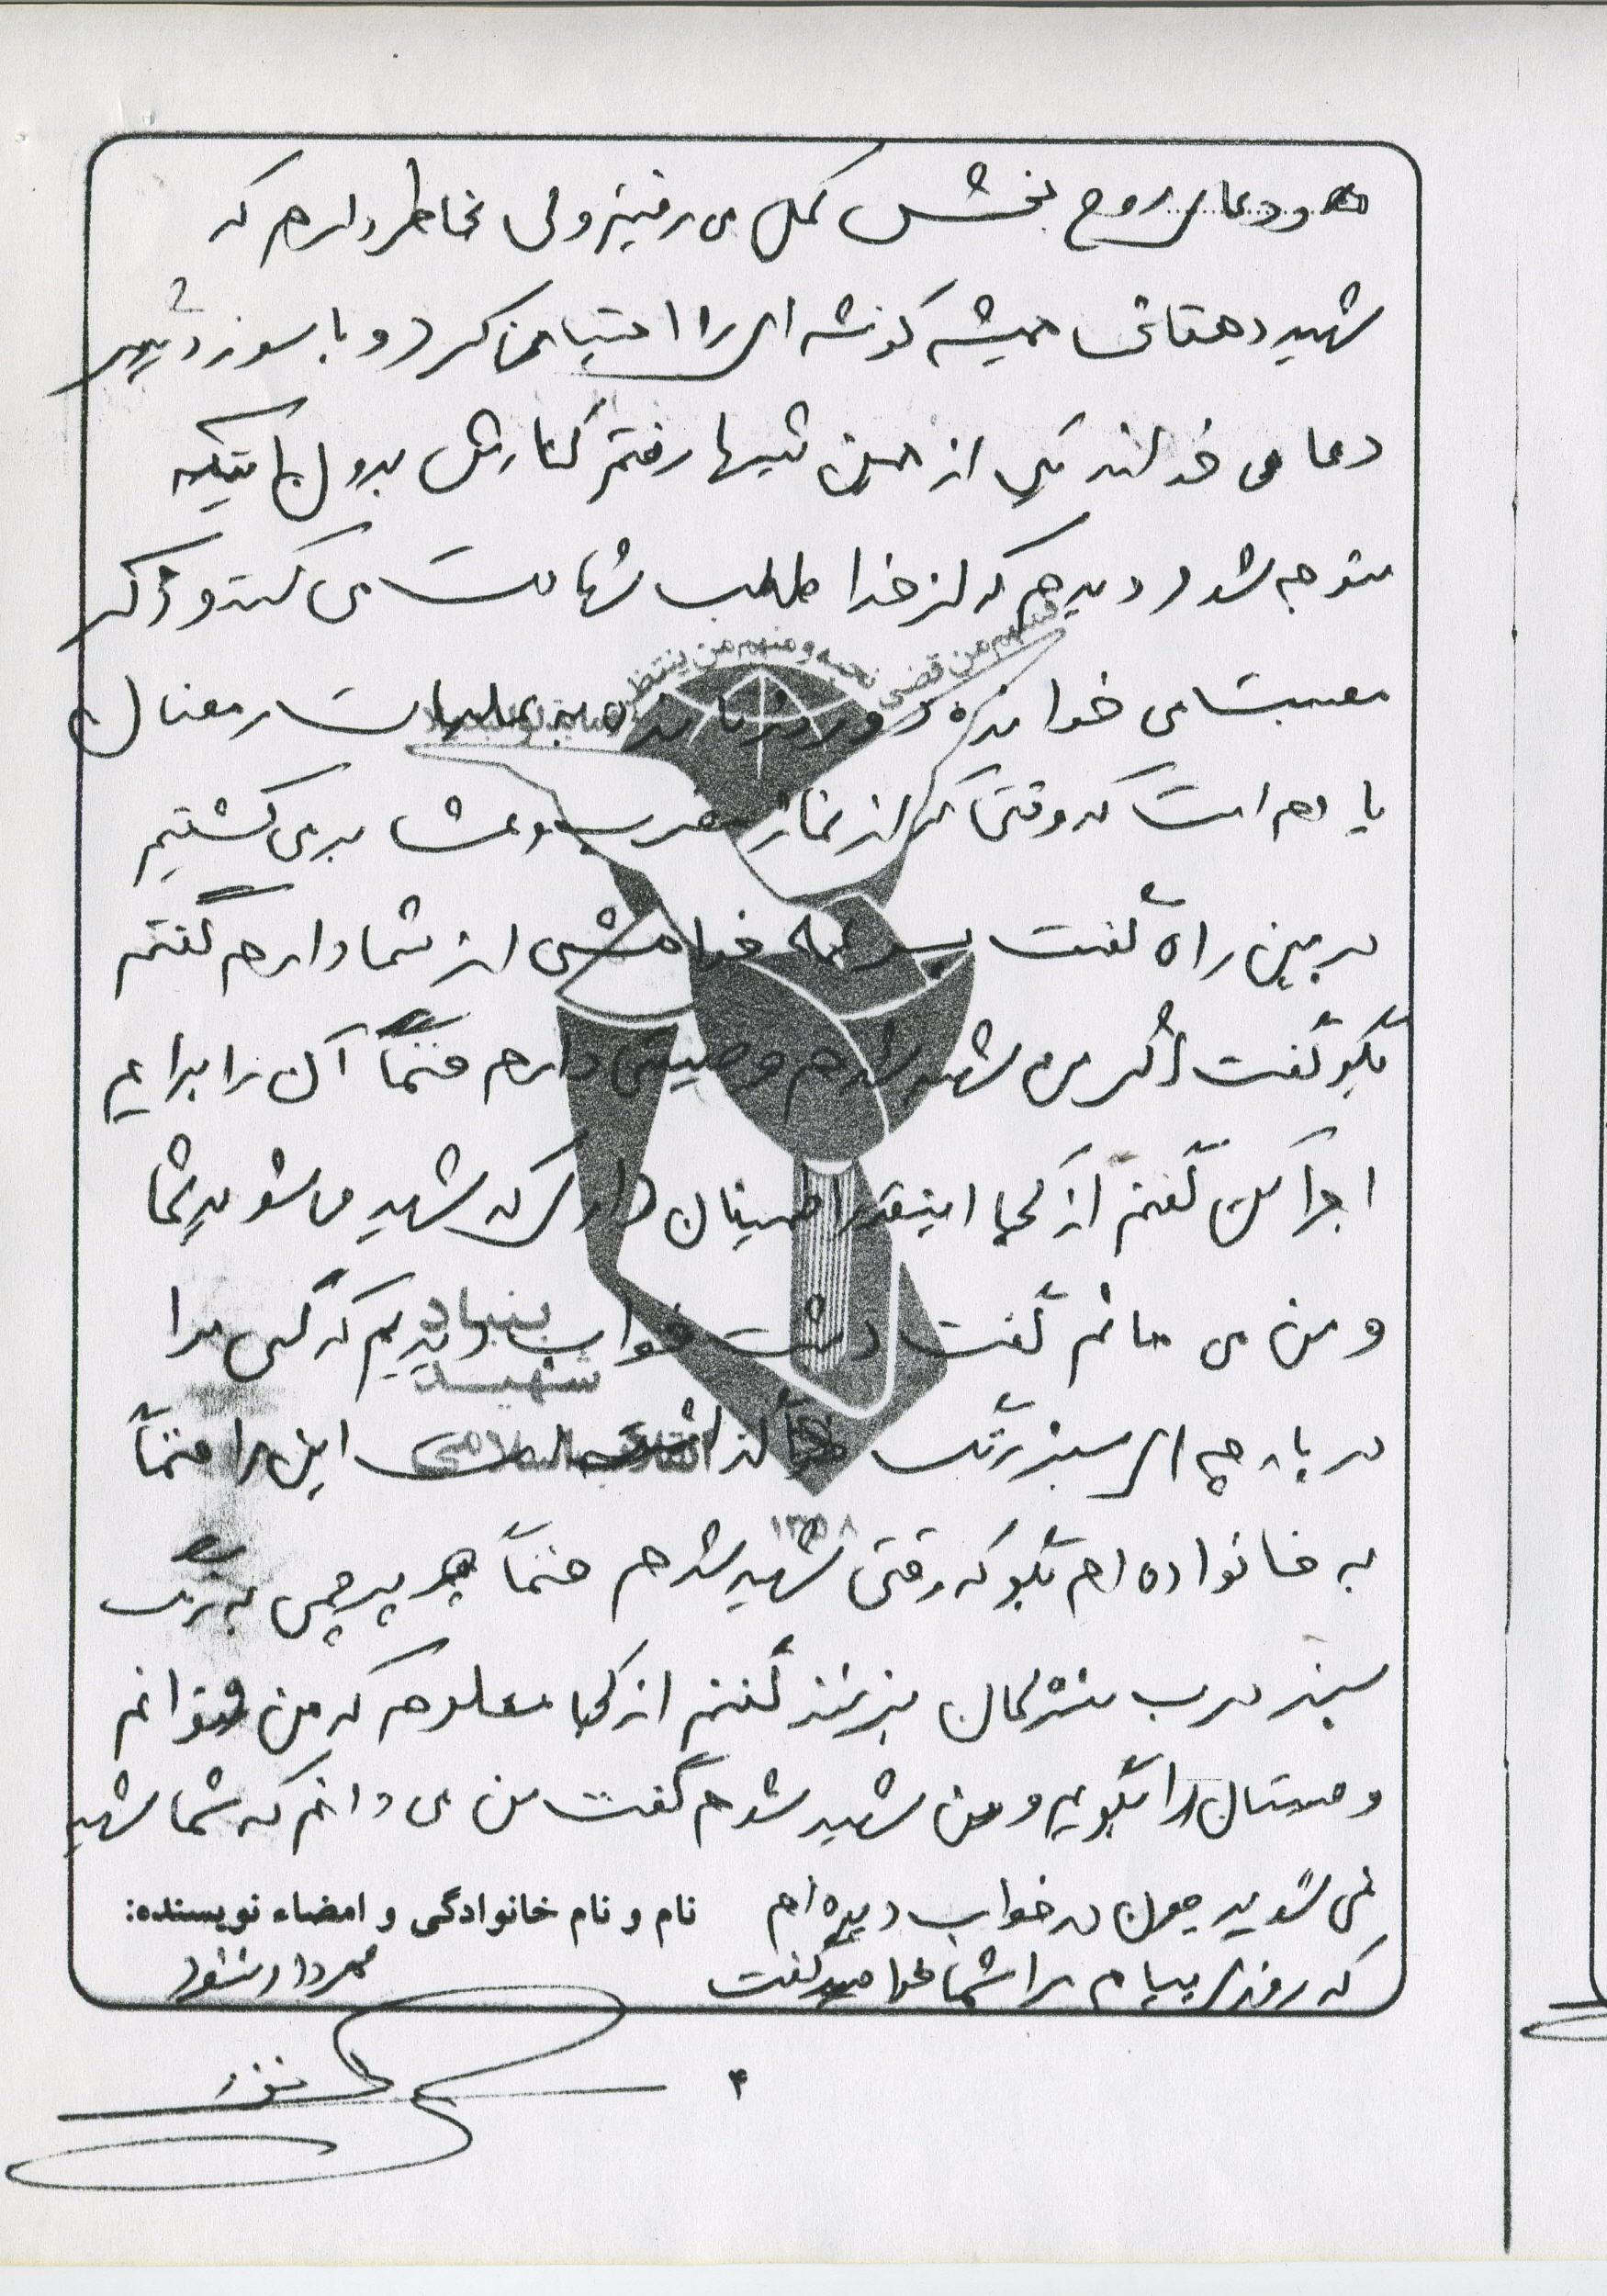 ودعای روح بخش کمیل می رفتیم ولی بخاطر دارم که
شهید دهقانی همیشه گوشه ای را اختیار می کرد و با سوز
دعا می خواند یکی از همین شبها رفتم کنارش بدون اینکه
متوجه شود دیدم که از خدا طلب شهادت می کند و ذکر
مصیبت می خواند دو روز مانده به عملیات رمضان
یادم است که وقتی که از نماز مغرب و عشاء برمی گشتیم
در بین راه گفت خواهشی از شما دارم گفتم
بگو گفت اگر من شهید شدم وصیتی دارم حتماً آن را برایم
اجرا کن گفتم از کجا اینقدر اطمینان داری که شهید می شوید شما
و من می مانم گفت دشب خواب دیدم که کسی مرا
در پارچه ای سبز رنگ این را حتماً
به خانواده ام بگو که وقتی شهید شدم حتماً پرچمی به رنگ
سبز درب منزلمان بزنند گفتم از کجا معلوم که من بتوانم
وصیتتان را بگویم و من شهید نشوم گفت من می دانم که شما شهید
نمی شوید چون در خواب دیده ام
که روزی پیام مرا شما خواهید گفت
نام و نام خانوادگی و امضاء نویسنده:
فمنهم من قضی نحبه و منهم من ینتظر
بنیاد
شهید
انقلاب اسلامی
۴